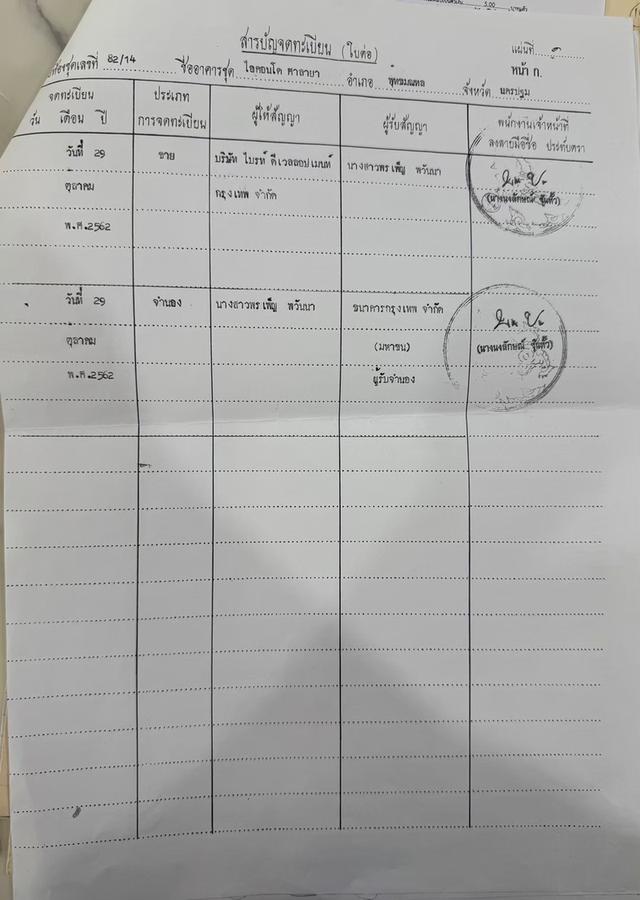 5.00
สารบัญจดทะเบียน (ใบต่อ)
แผ่นที่
ห้องชุดเลขที่ 82/14 ชื่ออาคารชุด ไอคอนโด ศาลายา อำเภอ พุทธมณฑล จังหวัด นครปฐม
หน้า ก.
จดทะเบียน
วัน เดือน ปี
ประเภท
การจดทะเบียน
ผู้ให้สัญญา
ผู้รับสัญญา
พนักงานเจ้าหน้าที่
ลงลายมือชื่อ ประทับตรา
วันที่ 29 ขาย บริษัท ไบรท์ ดีเวลลอปเมนท์ นางสาวพรเพ็ญ พวันนา
ตุลาคม กรุงเทพ จำกัด
(นางนงลักษณ์
พ.ศ.2562
วันที่ 29 จำนอง นางสาวพรเพ็ญ พวันนา ธนาคารกรุงเทพ จำกัด
ตุลาคม (มหาชน) (นางนงลักษณ์
พ.ศ.2562 ผู้รับจำนอง